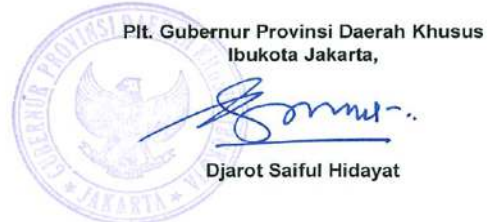 Plt. Gubernur Provinsi Daerah Khusus
Ibukota Jakarta,
Djarot Saiful Hidayat
GUBERNUR PROVINSI DAERAH KHUSUS
JAKARTA